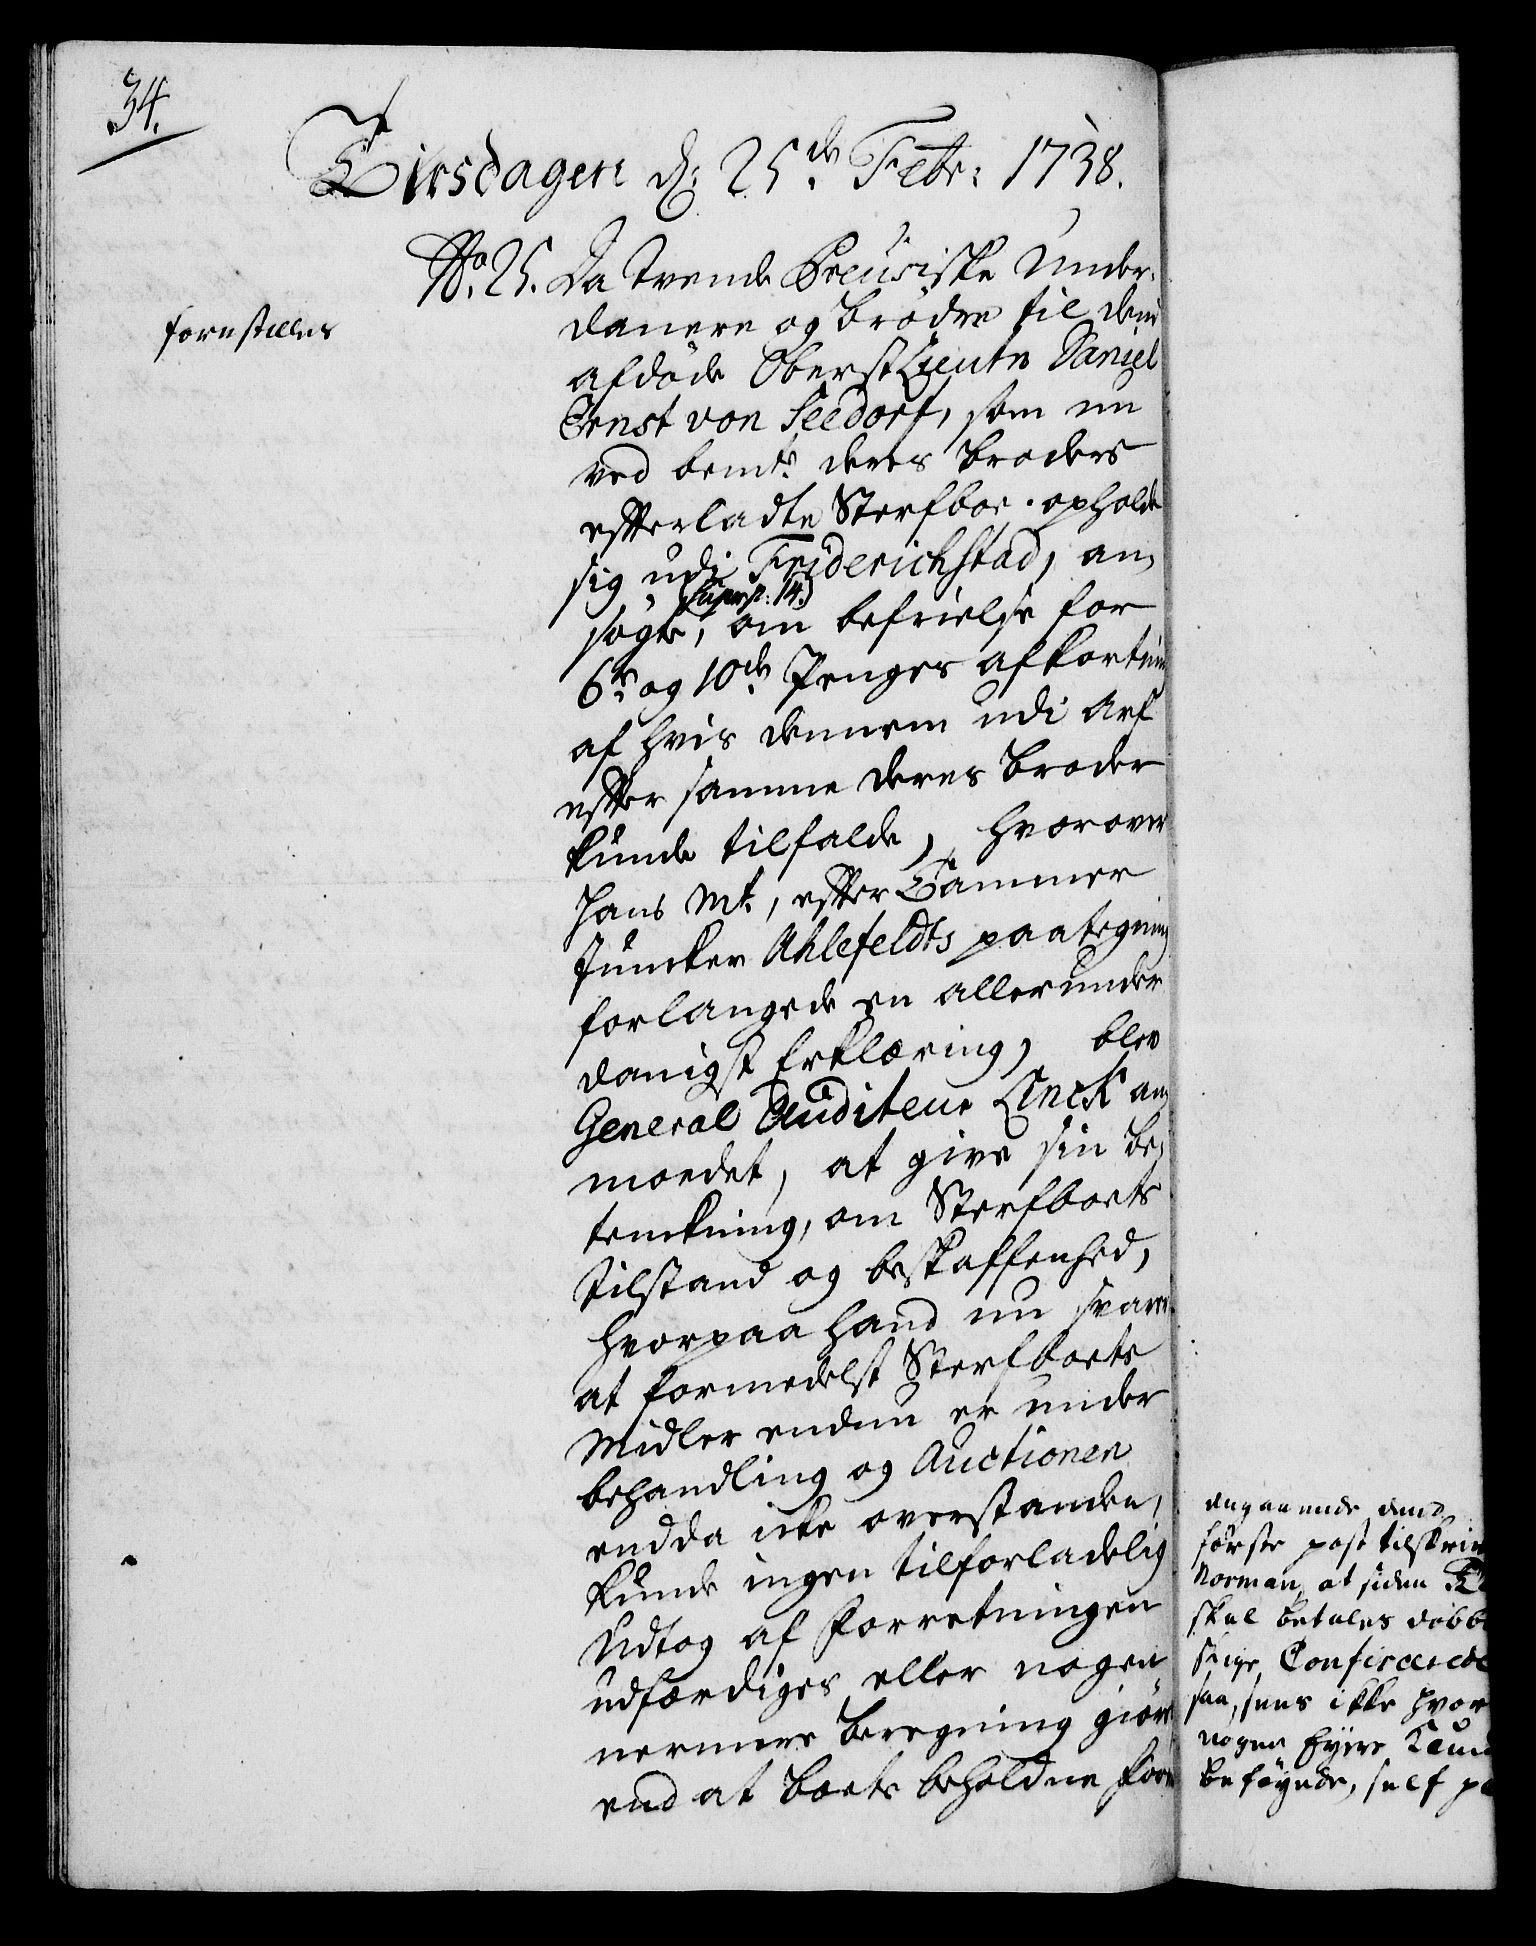 34.
Tirsdagen d: 25de Febr: 1738.
No. 25. Da tvende Preusiske Under-
danere og brödre til den
forestilles
afdöde Oberst Lieutn Daniel
Ernst von Seedorf, som nu
ved bemte deres broders
efterladte Sterfboe opholde
sig udj Friderichstad, an-
(super p: 14.)
sögte, om befrielse for
6te og 10de Penges afkortning
af hvis dennem udi Arf
efter samme deres broder
kunde tilfalde, hvorover
Hans Mt., efter Cammer
Juncker Ahlefeldts paategning
forlangede en allerunder
danigst Erklæring, blev
General Auditeur Linck an-
moedet, at give sin be-
tenkning, om Sterfboets
tilstand og beskaffenhed,
hvorpaa hand nu svarer
at formedelst Sterfboets
Midler endnu er under
behandling og Auctionen
endda icke overstanden,
kunde ingen tilforladelig
Udtog af Forretningen
udfærdiges eller nogen
nermere beregning giöres
end at boets beholdne For
angaaende dend
förste post tilskriv
Norman, at siden
skal betales dobb
saa, sees ikke hvor
nogen
beföyede, self p